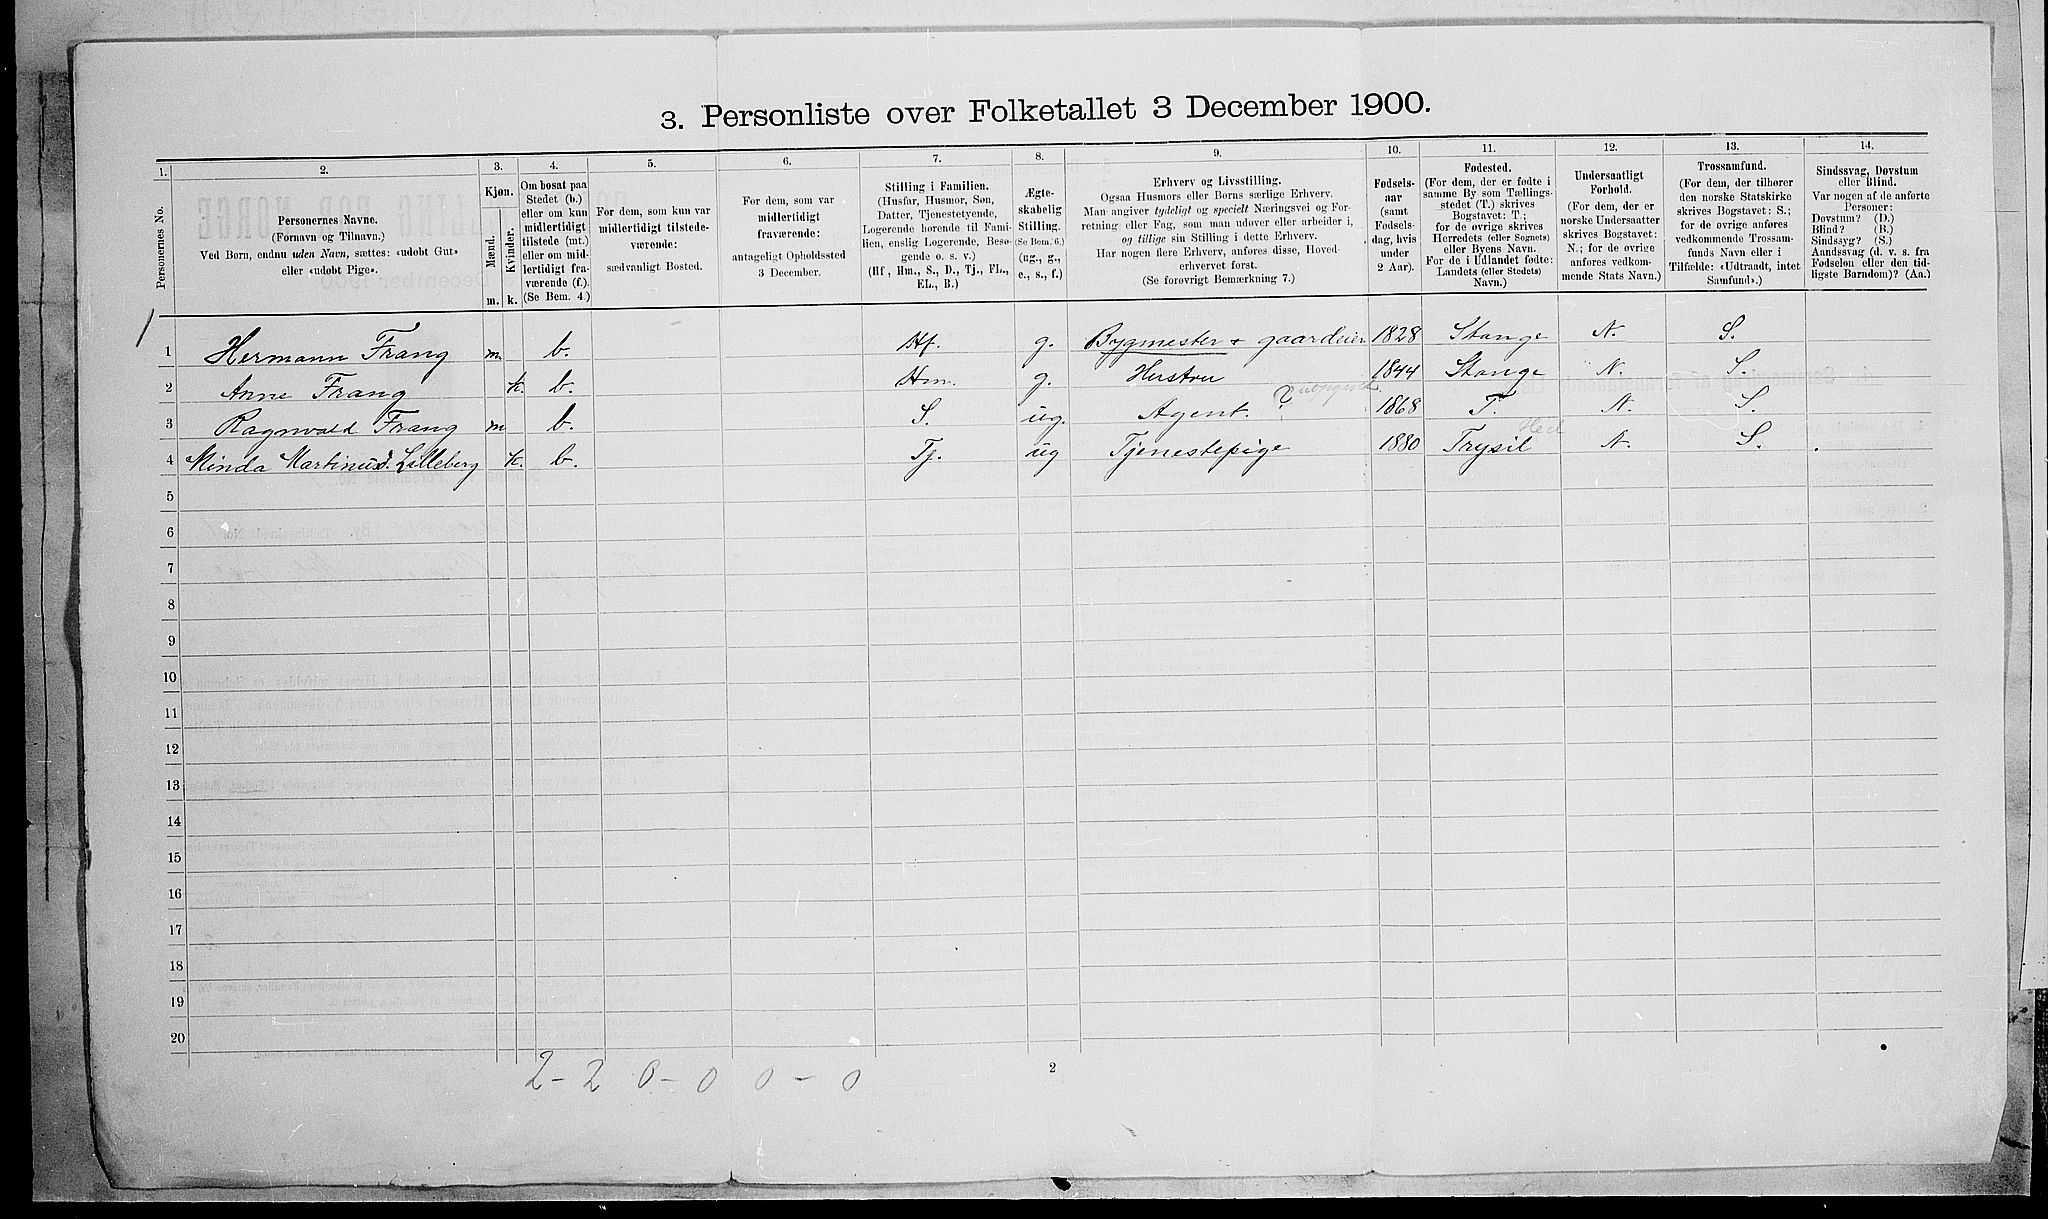 3. Personliste over Folketallet 3 December 1900.
1. 2. 3. 4. 5. 6. 7. 8. 9. 10. 11. 12. 13. 14.
Personernes No.
Personernes Navne.
(Fornavn og Tilnavn.)
Ved Børn, endnu uden Navn, sættes: «udøbt Gut»
eller «udøbt Pige».
Kjøn.
Mænd.
Kvinder.
m. k.
Om bosat paa
Stedet (b.)
eller om kun
midlertidigt
tilstede (mt.)
eller om mid-
lertidigt fra-
værende (f.).
(Se Bem. 4.)
For dem, som kun var
midlertidigt tilstede-
værende:
sædvanligt Bosted.
For dem, som var
midlertidigt
fraværende:
antageligt Opholdssted
3 December.
Stilling i Familien.
(Husfar, Husmor, Søn,
Datter, Tjenestetyende,
Logerende hørende til Fami-
lien, enslig Logerende, Besø-
gende o. s. v.)
(Hf, Hm., S., D., Tj., FL.,
EL., B.)
Ægte-
skabelig
Stilling.
(Se Bem. 6.)
(ug., g.,
e., s., f.)
Erhverv og Livsstilling.
Ogsaa Husmors eller Børns særlige Erhverv.
Man angiver tydeligt og specielt Næringsvei og For-
retning eller Fag, som man udøver eller arbeider i,
og tillige sin Stilling i dette Erhverv.
Har nogen flere Erhverv, anføres disse, Hoved-
erhvervet først.
(Se forøvrigt Bemærkning 7.)
Fødsels-
aar
(samt
Fødsels-
dag, hvis
under
2 Aar).
Fødested.
(For dem, der er fødte i
samme By som Tællings-
stedet (T.) skrives
Bogstavet: T.;
for de øvrige skrives
Herredets (eller Sognets)
eller Byens Navn.
For de i Udlandet fødte:
Landets (eller Stedets)
Navn.)
Undersaatligt
Forhold.
(For dem, der er
norske Undersaatter
skrives Bogstavet:
N.; for de øvrige
anføres vedkom-
mende Stats Navn.)
Trossamfund.
(For dem, der tilhører
den norske Statskirke
skrives Bogstavet: S.;
for de øvrige anføres
vedkommende Trossam-
funds Navn eller i
Tilfælde: «Udtraadt, intet
Samfund».)
Sindssvag, Døvstum
eller Blind.
Var nogen af de anførte
Personer:
Døvstum? (D.)
Blind? (B.)
Sindssyg? (S.)
Aandssvag (d. v. s. fra
Fødselen eller den tid-
ligste Barndom)? (Aa.)
1 Hermann Frang m b. Hf. g. Bygmester + gaardeier 1828 Stange N. S.
2 Anne Frang k. b. Hm. g. Hustru 1844 Stange N. S.
3 Ragnvald Frang m b. S. ug. Agent. ? 1868 T. N. S.
4 Minda Martinusd. Lilleberg k. b. Tj. ug Tjenestepige 1880 Trysil Hed N. S.
5
6
7
8
9
10
11
12
13
14
15
16
17
18
19
20
2 - 2 0 - 0 0 - 0
2